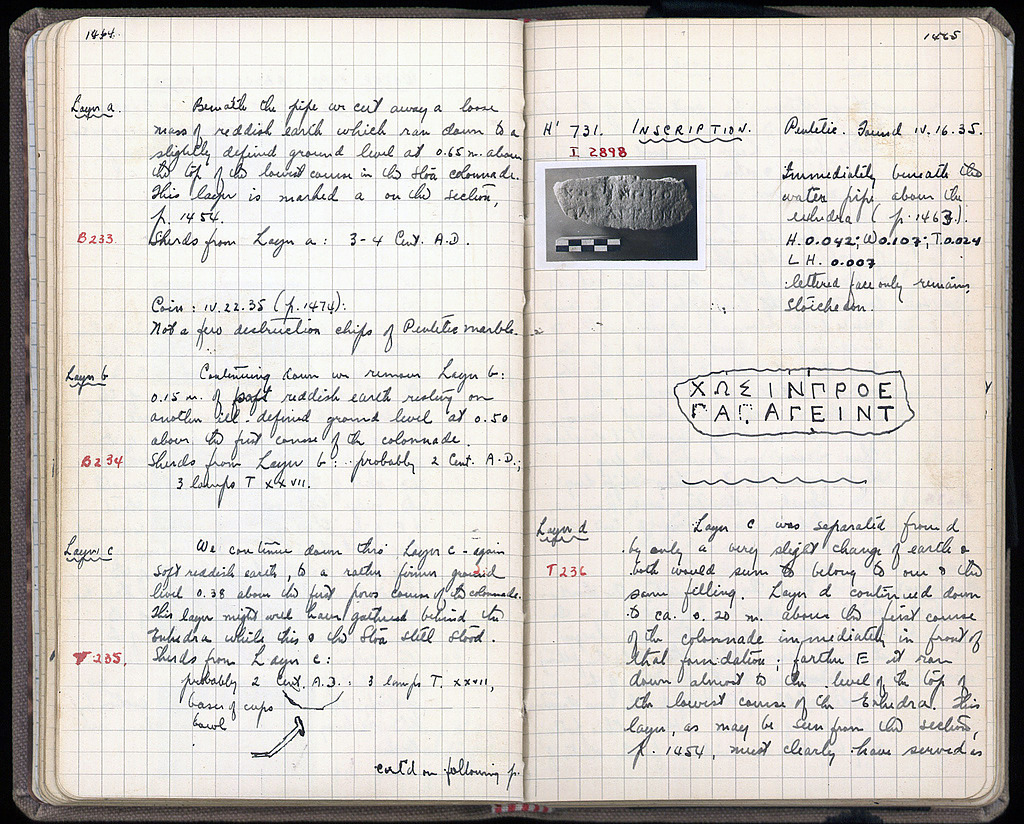 1464.
Layer a. Beneath the pipe we cut away a loose
mass of reddish earth which ran down to a
slightly defined ground level at 0.65 m. above
the top of the lowest course in the Stoa colonnade.
This layer is marked a on the section,
p. 1454.
B233 Sherds from Layer a: 3-4 Cent. A.D.
Coin: IV.22.35 (p. 1474).
Not a few destruction chips of Pentelic marble.
Layer b Continuing down we remove Layer b:
0.15 m. of soft reddish earth resting on
another ill-defined ground level at 0.50
above the first course of the colonnade.
B234 Sherds from Layer b: probably 2 Cent. A.D.;
3 lamps T XXVII.
Layer c We continue down thro' Layer c - again
soft reddish earth, to a rather firmer ground
level 0.38 above the first poros course of the colonnade.
This layer might well have gathered behind the
Exhedra while this & the Stoa still stood.
T235. Sherds from Layer c:
probably 2 Cent. A.D.: 3 lamps T. XXVII,
bases of cups
bowl
cont'd on following p.
1465
H' 731. INSCRIPTION. Pentelic. Found IV.16.35.
I 2898
Immediately beneath the
water pipe above the
exhedra (p. 1463).
H. 0.042; W 0.107; T. 0.024
L H. 0.007
lettered face only remains.
Stoichedon.
ΧΩΣΙΝΠΡΟΕ
ΓΑΠΑΓΕΙΝΤ
Layer d Layer c was separated from d
by only a very slight change of earth &
T236 both would seem to belong to one & the
same filling. Layer d continued down
to ca. 0.20 m. above the first course
of the colonnade immediately in front of
that foundation; farther E it ran
down almost to the level of the top of
the lowest course of the Exhedra. This
layer, as may be seen from the section,
p. 1454, must clearly have served as